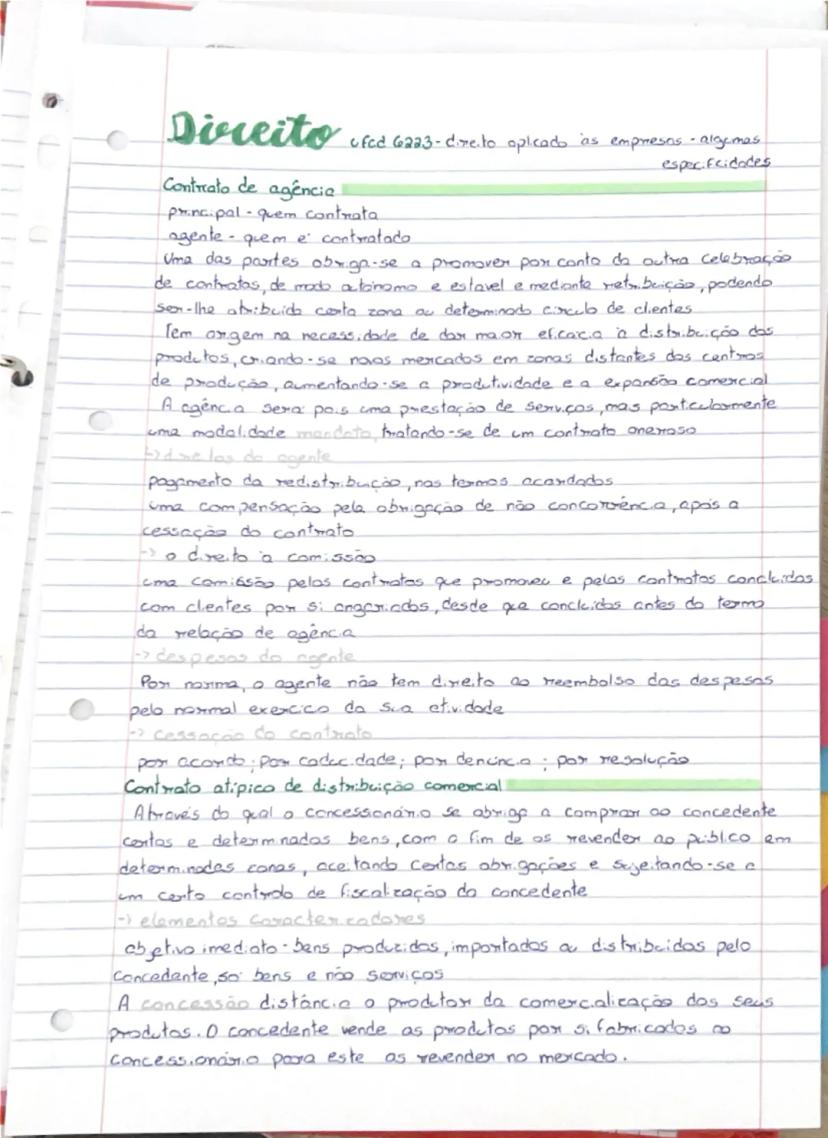 Direito ufcd 6223 - direito aplicado às empresas - algumas
especificidades
Contrato de agência
principal - quem contrata
agente - quem é contratado
Uma das partes obriga-se a promover por conta da outra celebração
de contratos, de modo autónomo e estavel e mediante retribuição, podendo
ser-lhe atribuida certa zona ou determinado circulo de clientes
Tem origem na necessidade de dar maior eficacia à distribuição dos
produtos, criando-se novos mercados em zonas distantes dos centros
de produção, aumentando-se a produtividade e a expansão comercial
A agência será pois uma prestação de serviços, mas particularmente
uma modalidade mandato, tratando-se de um contrato oneroso
↳ direitos do agente
pagamento da redistribuição, nos termos acordados
uma compensação pela obrigação de não concorrência, após a
cessação do contrato
-> o direito à comissão
uma comissão pelos contratos que promoveu e pelos contratos concluidos
com clientes por si angariados, desde que concluidos antes do termo
da relação de agência
-> despesas do agente
Por norma, o agente não tem direito ao reembolso das despesas
pelo normal exercico da sua atividade
-> cessação do contrato
por acordo; por caducidade; por denúncia; por resolução
Contrato atipico de distribuição comercial
Através do qual o concessionário se obriga a comprar ao concedente
certos e determinados bens, com o fim de os revender ao público em
determinadas zonas, aceitando certas obrigações e sujeitando-se a
um certo controlo de fiscalização do concedente
-> elementos caracterizadores
objetivo imediato - bens produzidos, importados ou distribuidos pelo
concedente, só bens e não serviços
A concessão distância o produtor da comercialização dos seus
produtos. O concedente vende os produtos por si fabricados ao
concessionário para este os revender no mercado.